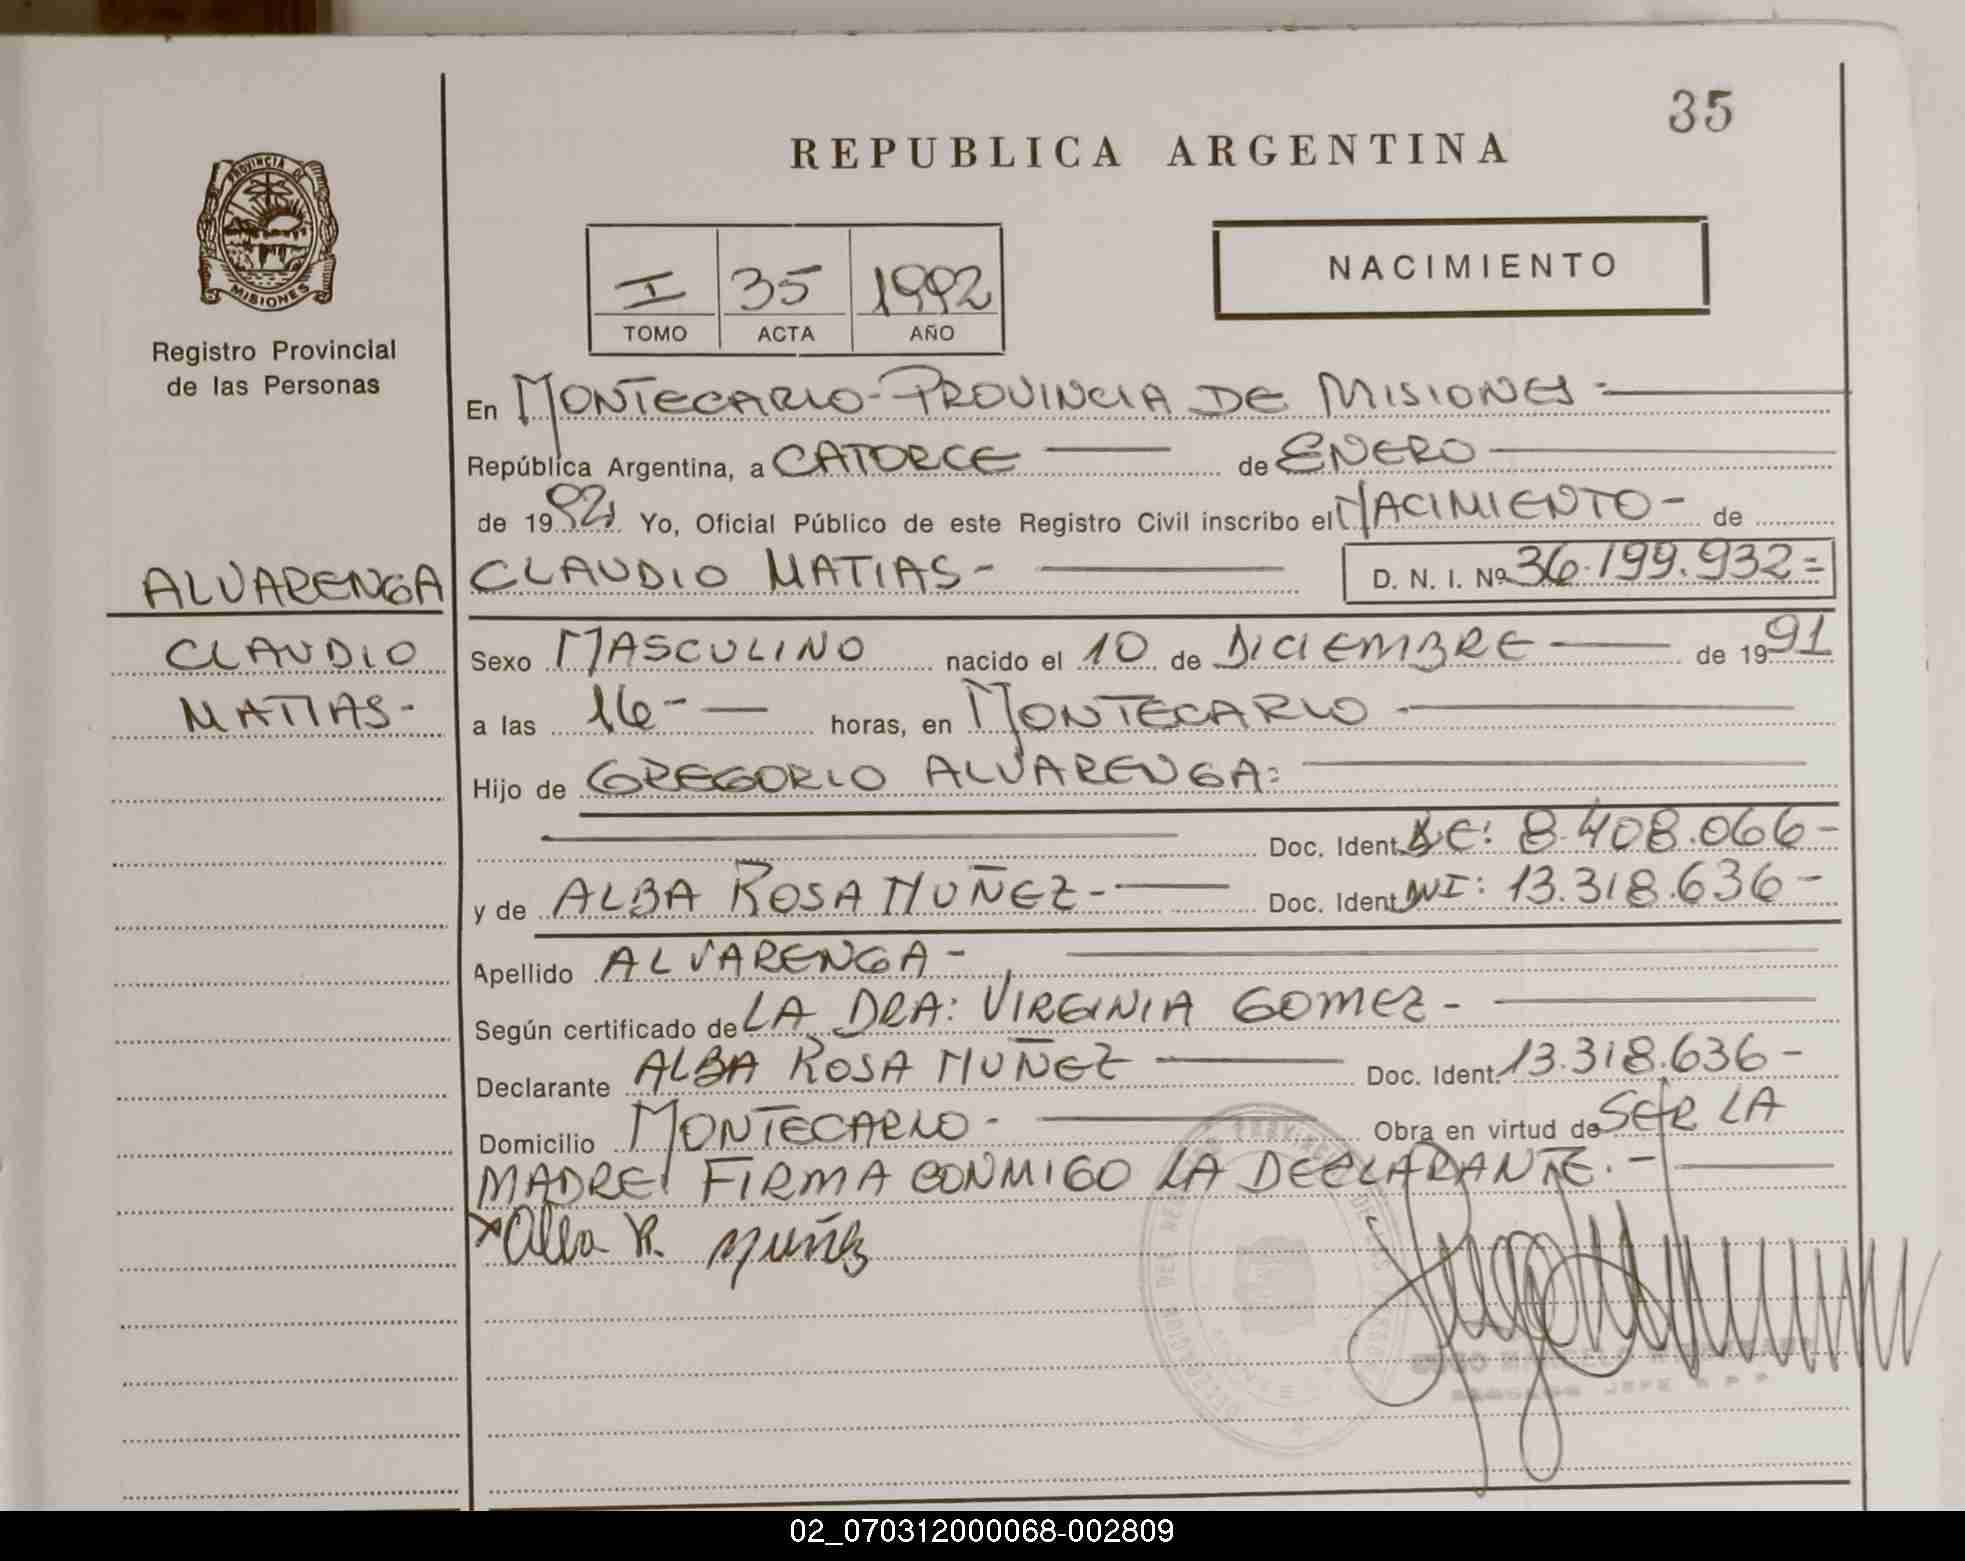 35
REPUBLICA ARGENTINA
PROVINCIA DE
MISIONES
Registro Provincial
de las Personas
I 35 1992
TOMO ACTA AÑO
NACIMIENTO
En MONTECARLO - PROVINCIA DE MISIONES -
República Argentina, a CATORCE de ENERO
de 1992 Yo, Oficial Público de este Registro Civil inscribo el NACIMIENTO - de
ALVARENGA
CLAUDIO
MATIAS -
CLAUDIO MATIAS - D. N. I. Nº 36.199.932=
Sexo MASCULINO nacido el 10 de DICIEMBRE de 1991
a las 16 - horas, en MONTECARLO -
Hijo de GREGORIO ALVARENGA:
Doc. Ident. LE: 8.408.066-
y de ALBA ROSA MUÑEZ - Doc. Ident. DNI: 13.318.636-
Apellido ALVARENGA -
Según certificado de LA DRA: VIRGINIA GOMEZ -
Declarante ALBA ROSA MUÑEZ Doc. Ident. 13.318.636-
Domicilio MONTECARLO - Obra en virtud de SER LA
MADRE! FIRMA CONMIGO LA DECLARANTE. -
x Alba R. Muñez
02_070312000068-002809